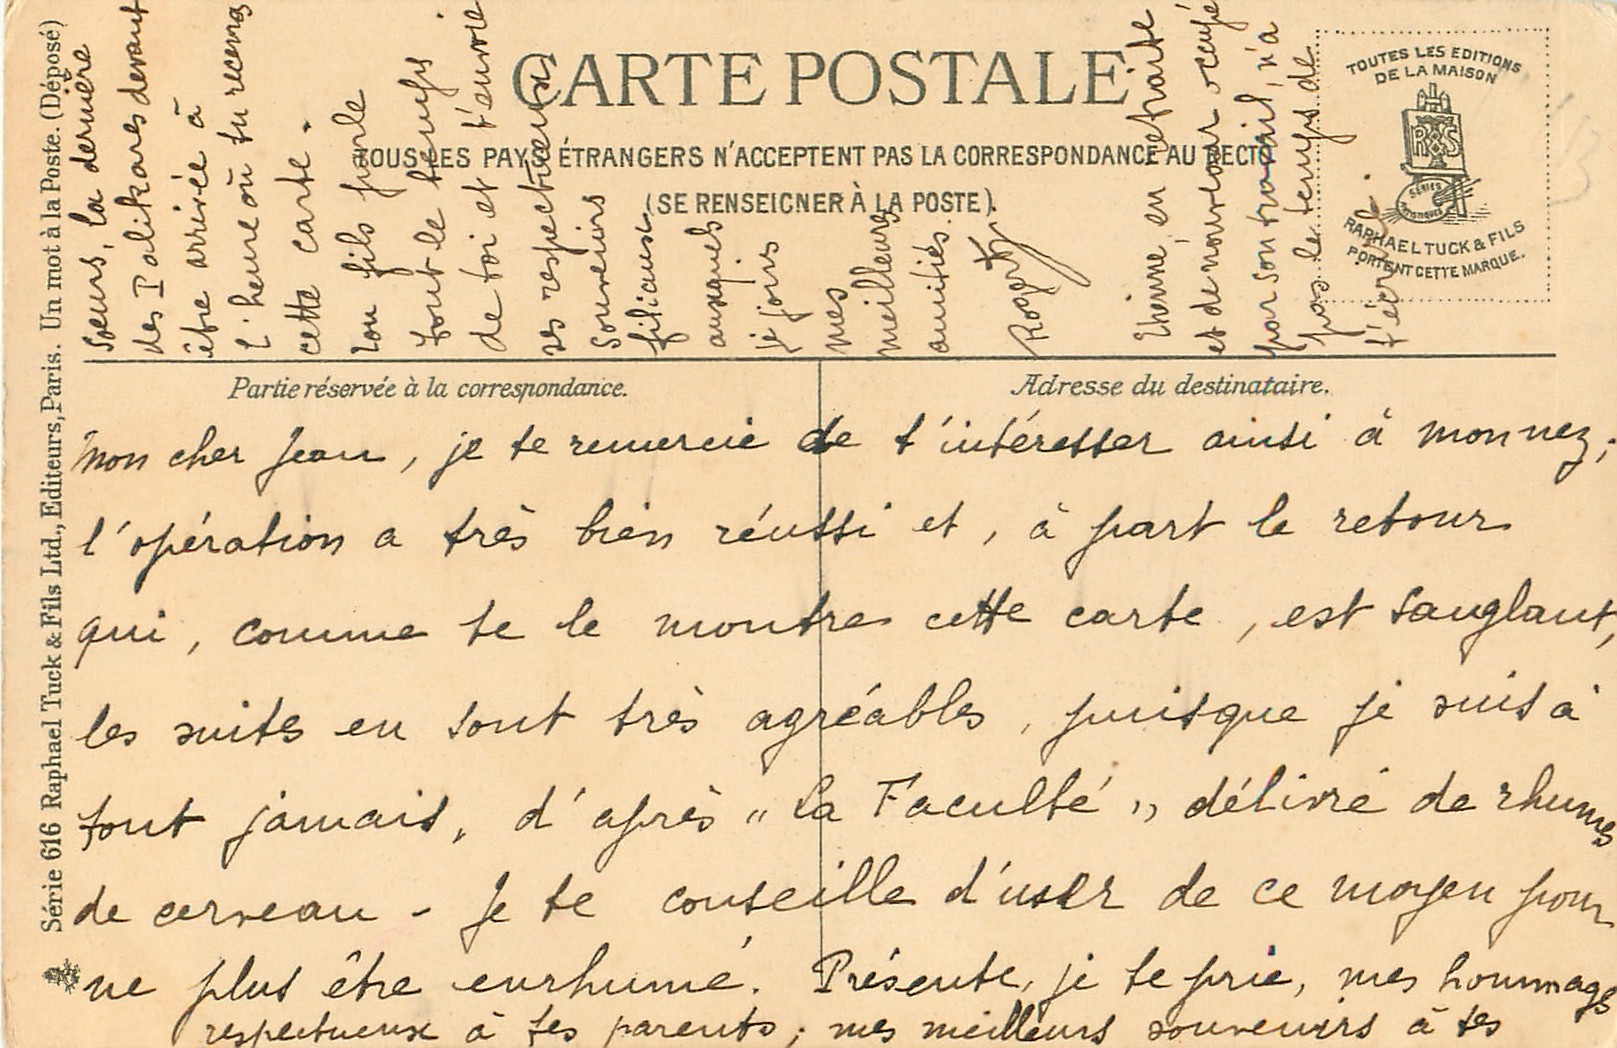 CARTE POSTALE
TOUS LES PAYS ÉTRANGERS N'ACCEPTENT PAS LA CORRESPONDANCE AU RECTO
(SE RENSEIGNER À LA POSTE).
TOUTES LES EDITIONS
DE LA MAISON
R & S
SÉRIES
ARTISTIQUES
RAPHAEL TUCK & FILS
PORTENT CETTE MARQUE.
Série 616 Raphael Tuck & Fils Ltd., Editeurs, Paris. Un mot à la Poste. (Déposé)
Partie réservée à la correspondance.
Adresse du destinataire.
Mon cher Jean, je te remercie de t'intéresser ainsi à mon nez;
l'opération a très bien réussi et, à part le retour
qui, comme te le montre cette carte, est sanglant,
les suites en sont très agréables, puisque je suis à
tout jamais, d'après "La Faculté", délivré de rhumes
de cerveau - Je te conseille d'user de ce moyen pour
ne plus être enrhumé. Présente, je te prie, mes hommages
respectueux à tes parents; mes meilleurs souvenirs à tes
soeurs, la dernière
des Palikares devant
être arrivée à
l'heure où tu recevras
cette carte.
Ton fils parle
tout le temps
de toi et t'envoie
ses respectueux
souvenirs
filiaux
auxquels
je joins
mes
meilleures
amitiés.
Roger
Etienne, en retraite
et de nouveau occupé
par son travail, n'a
pas le temps de
t'écrire.